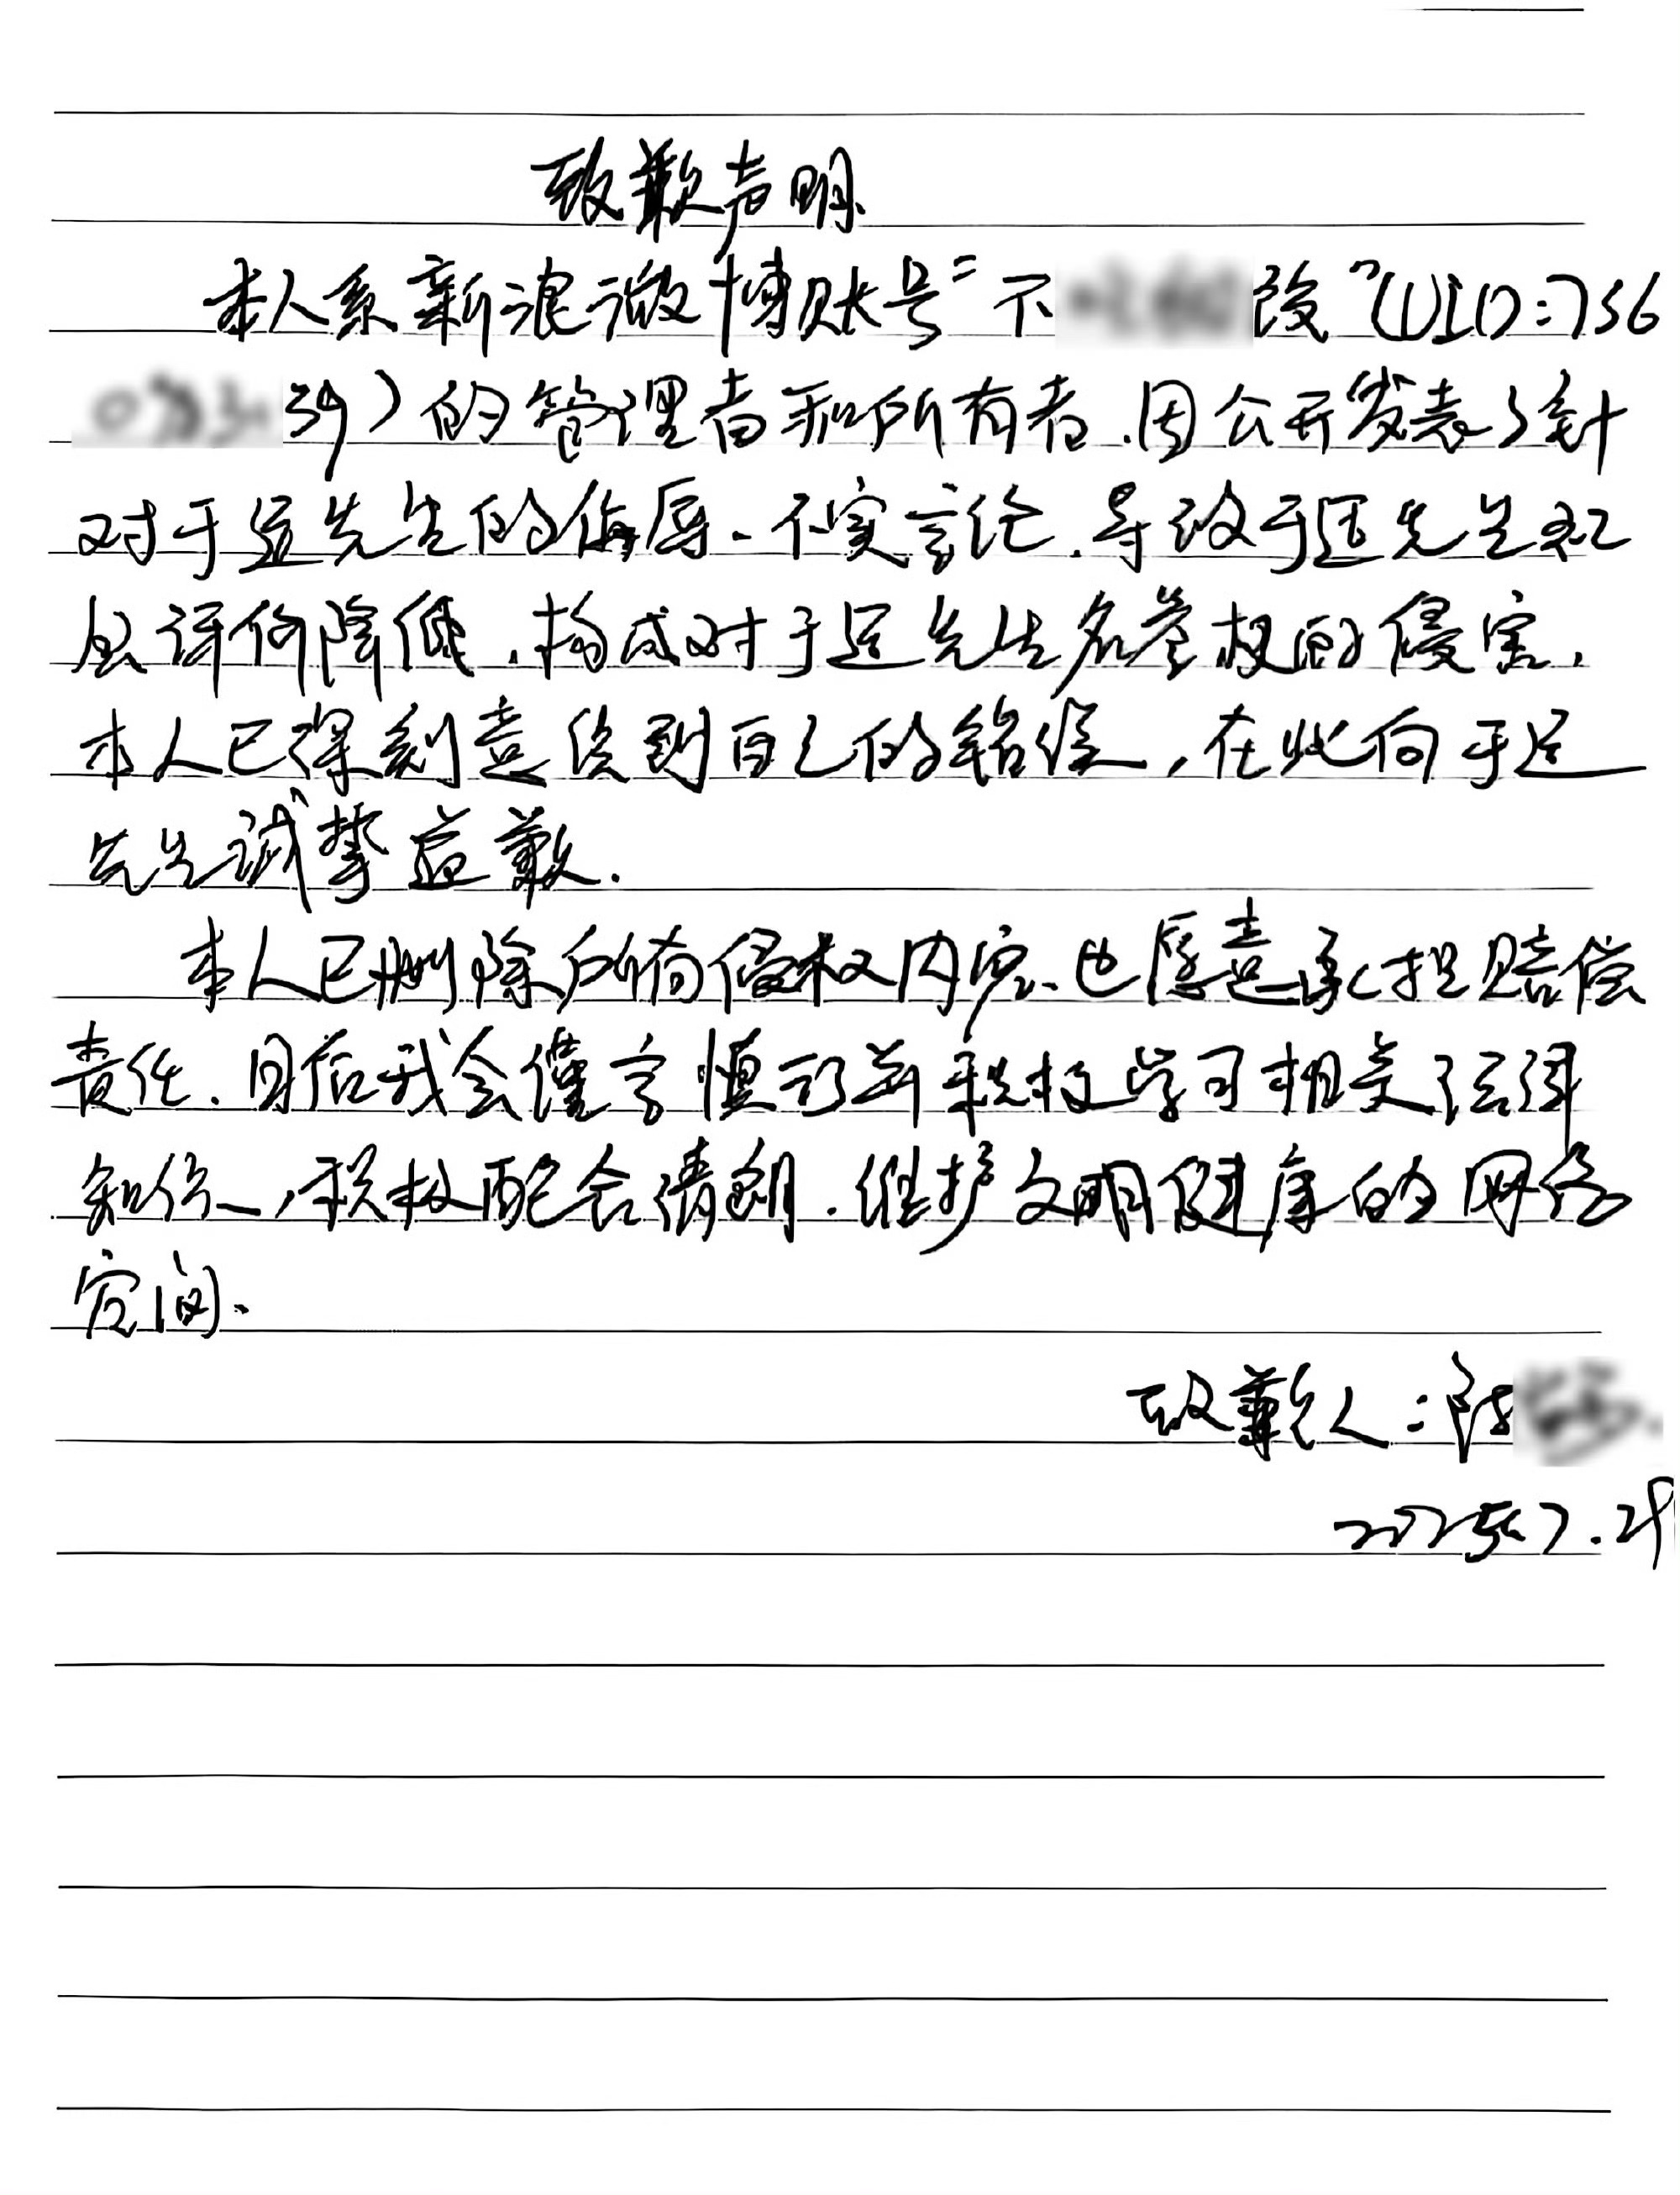 致歉声明
本人系新浪微博账号“不改”(UID:756
39）的管理者和所有者，因公开发表了针
对于适先生的侮辱、不实言论，导致于适先生社
会评价降低，构成对于适先生名誉权的侵害，
本人已深刻意识到自己的错误，在此向于适
先生诚挚道歉.
本人已删除所有侵权内容、也愿意承担赔偿
责任. 日后我会谨言慎行并积极学习相关法律
知识，积极配合清朗. 维护文明健康的网络
空间.
致歉人：陆
2025.7.29